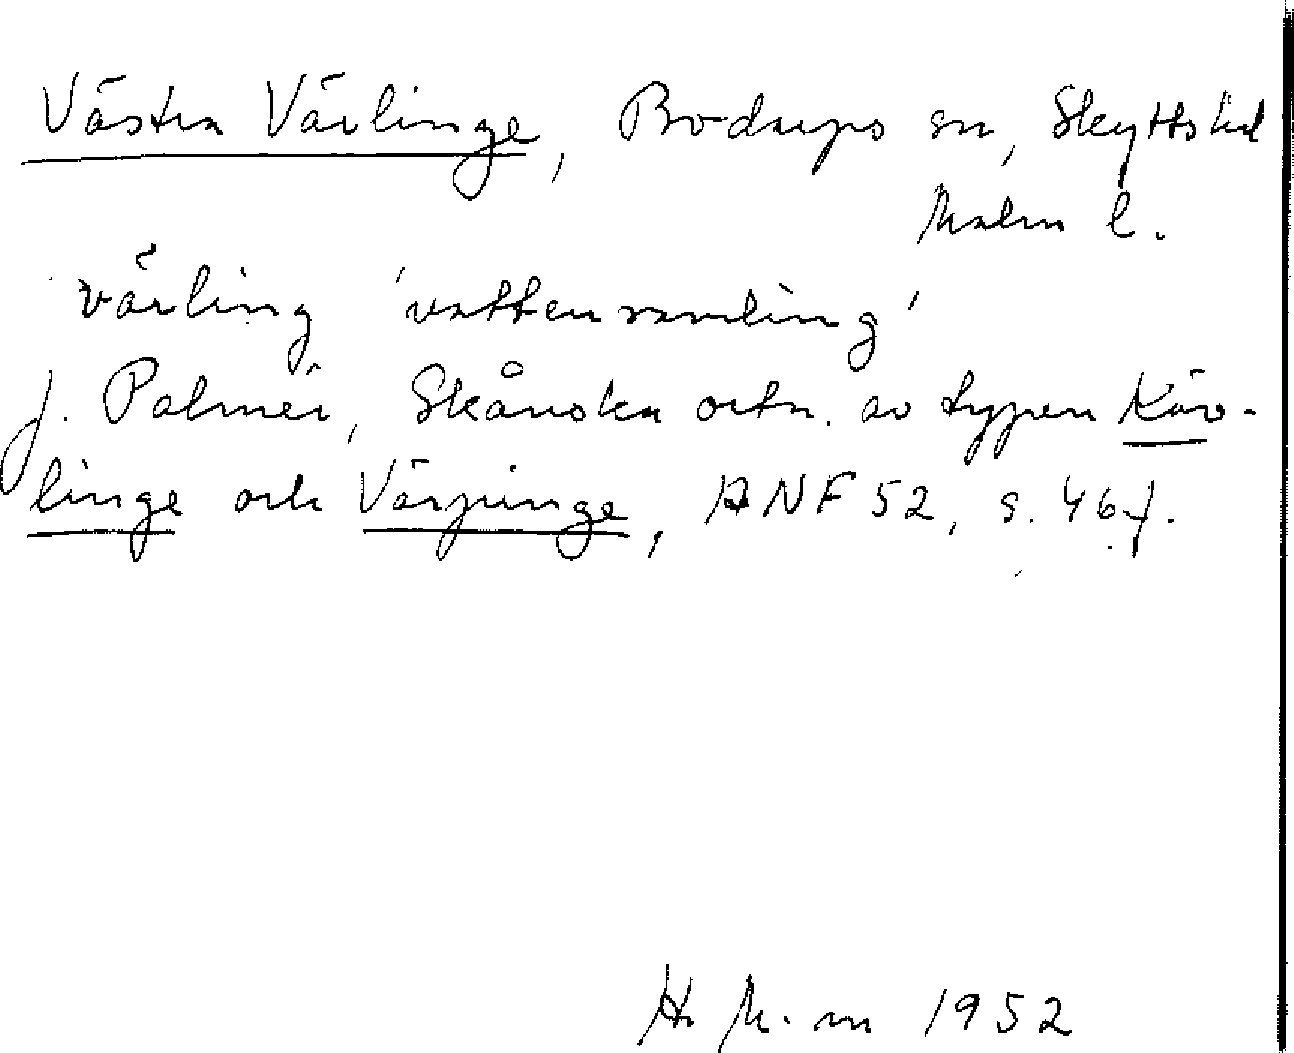 Västra Värlinge, Bodarps sn, Skytts hd
Malm l.
värling 'vattensamling'
J. Palmér, Skånska ortn. av typen Käv-
linge och Värpinge, ANF 52, s. 46 f.
H. M-m 1952